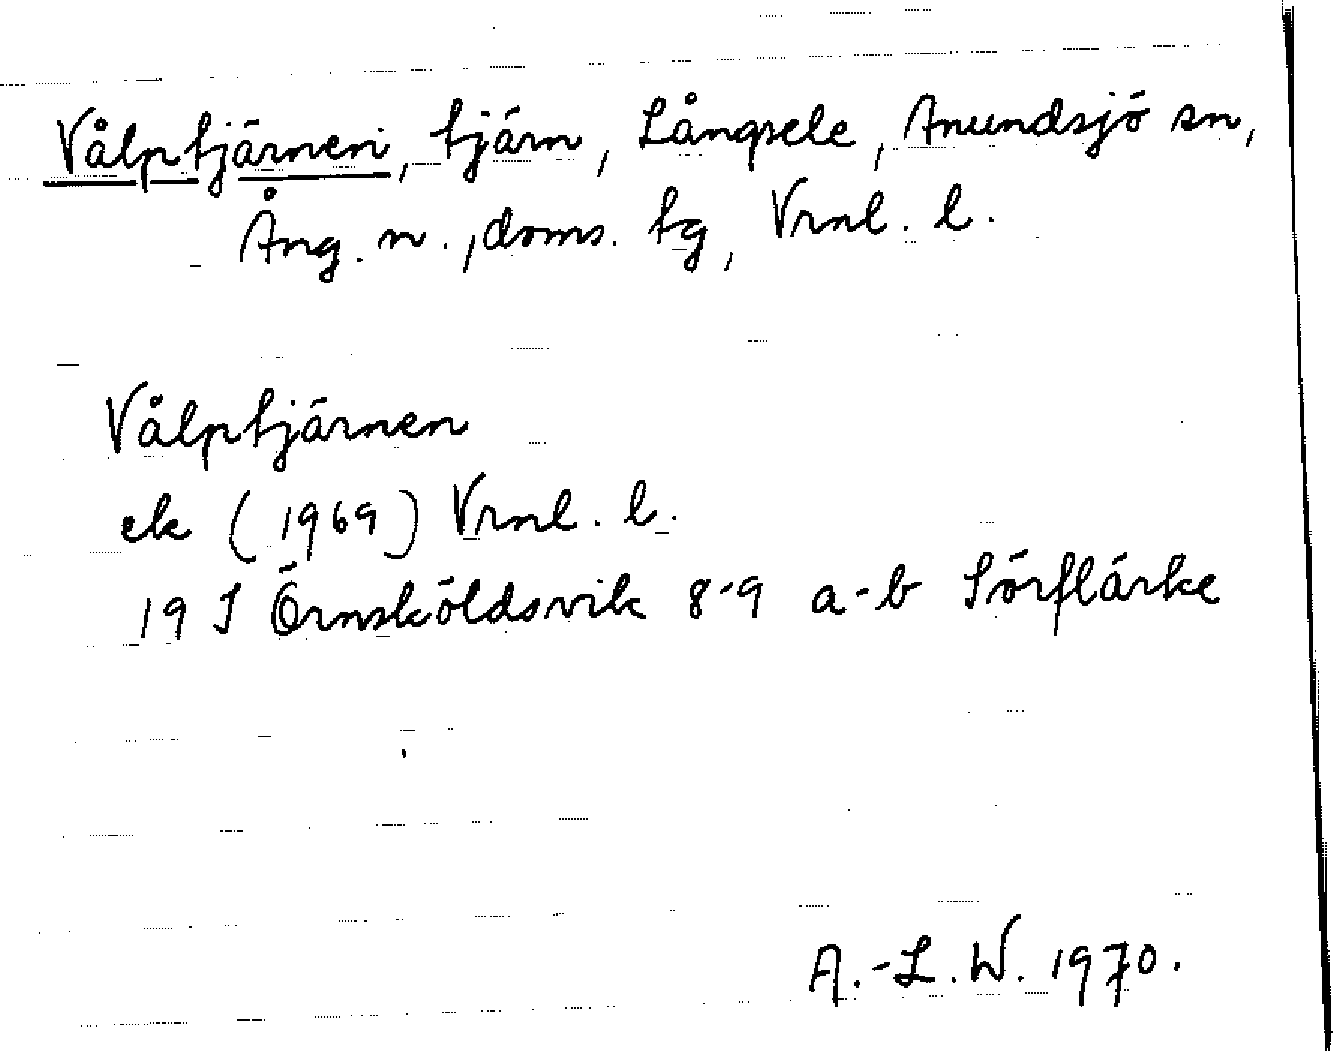 Vålptjärnen, tjärn, Långsele, Anundsjö sn,
Ång. n., doms. tg, Vrnl. l.
Vålptjärnen
ek (1969) Vrnl. l.
19 J Örnsköldsvik 8-9 a-b Sörflärke
A.-L. W. 1970.